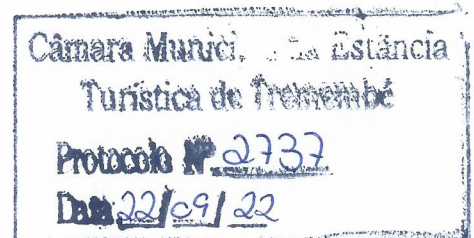 Câmara Munici. Estância
Turística de Tremembé
Protocolo Nº 2737
Data 22/09/22